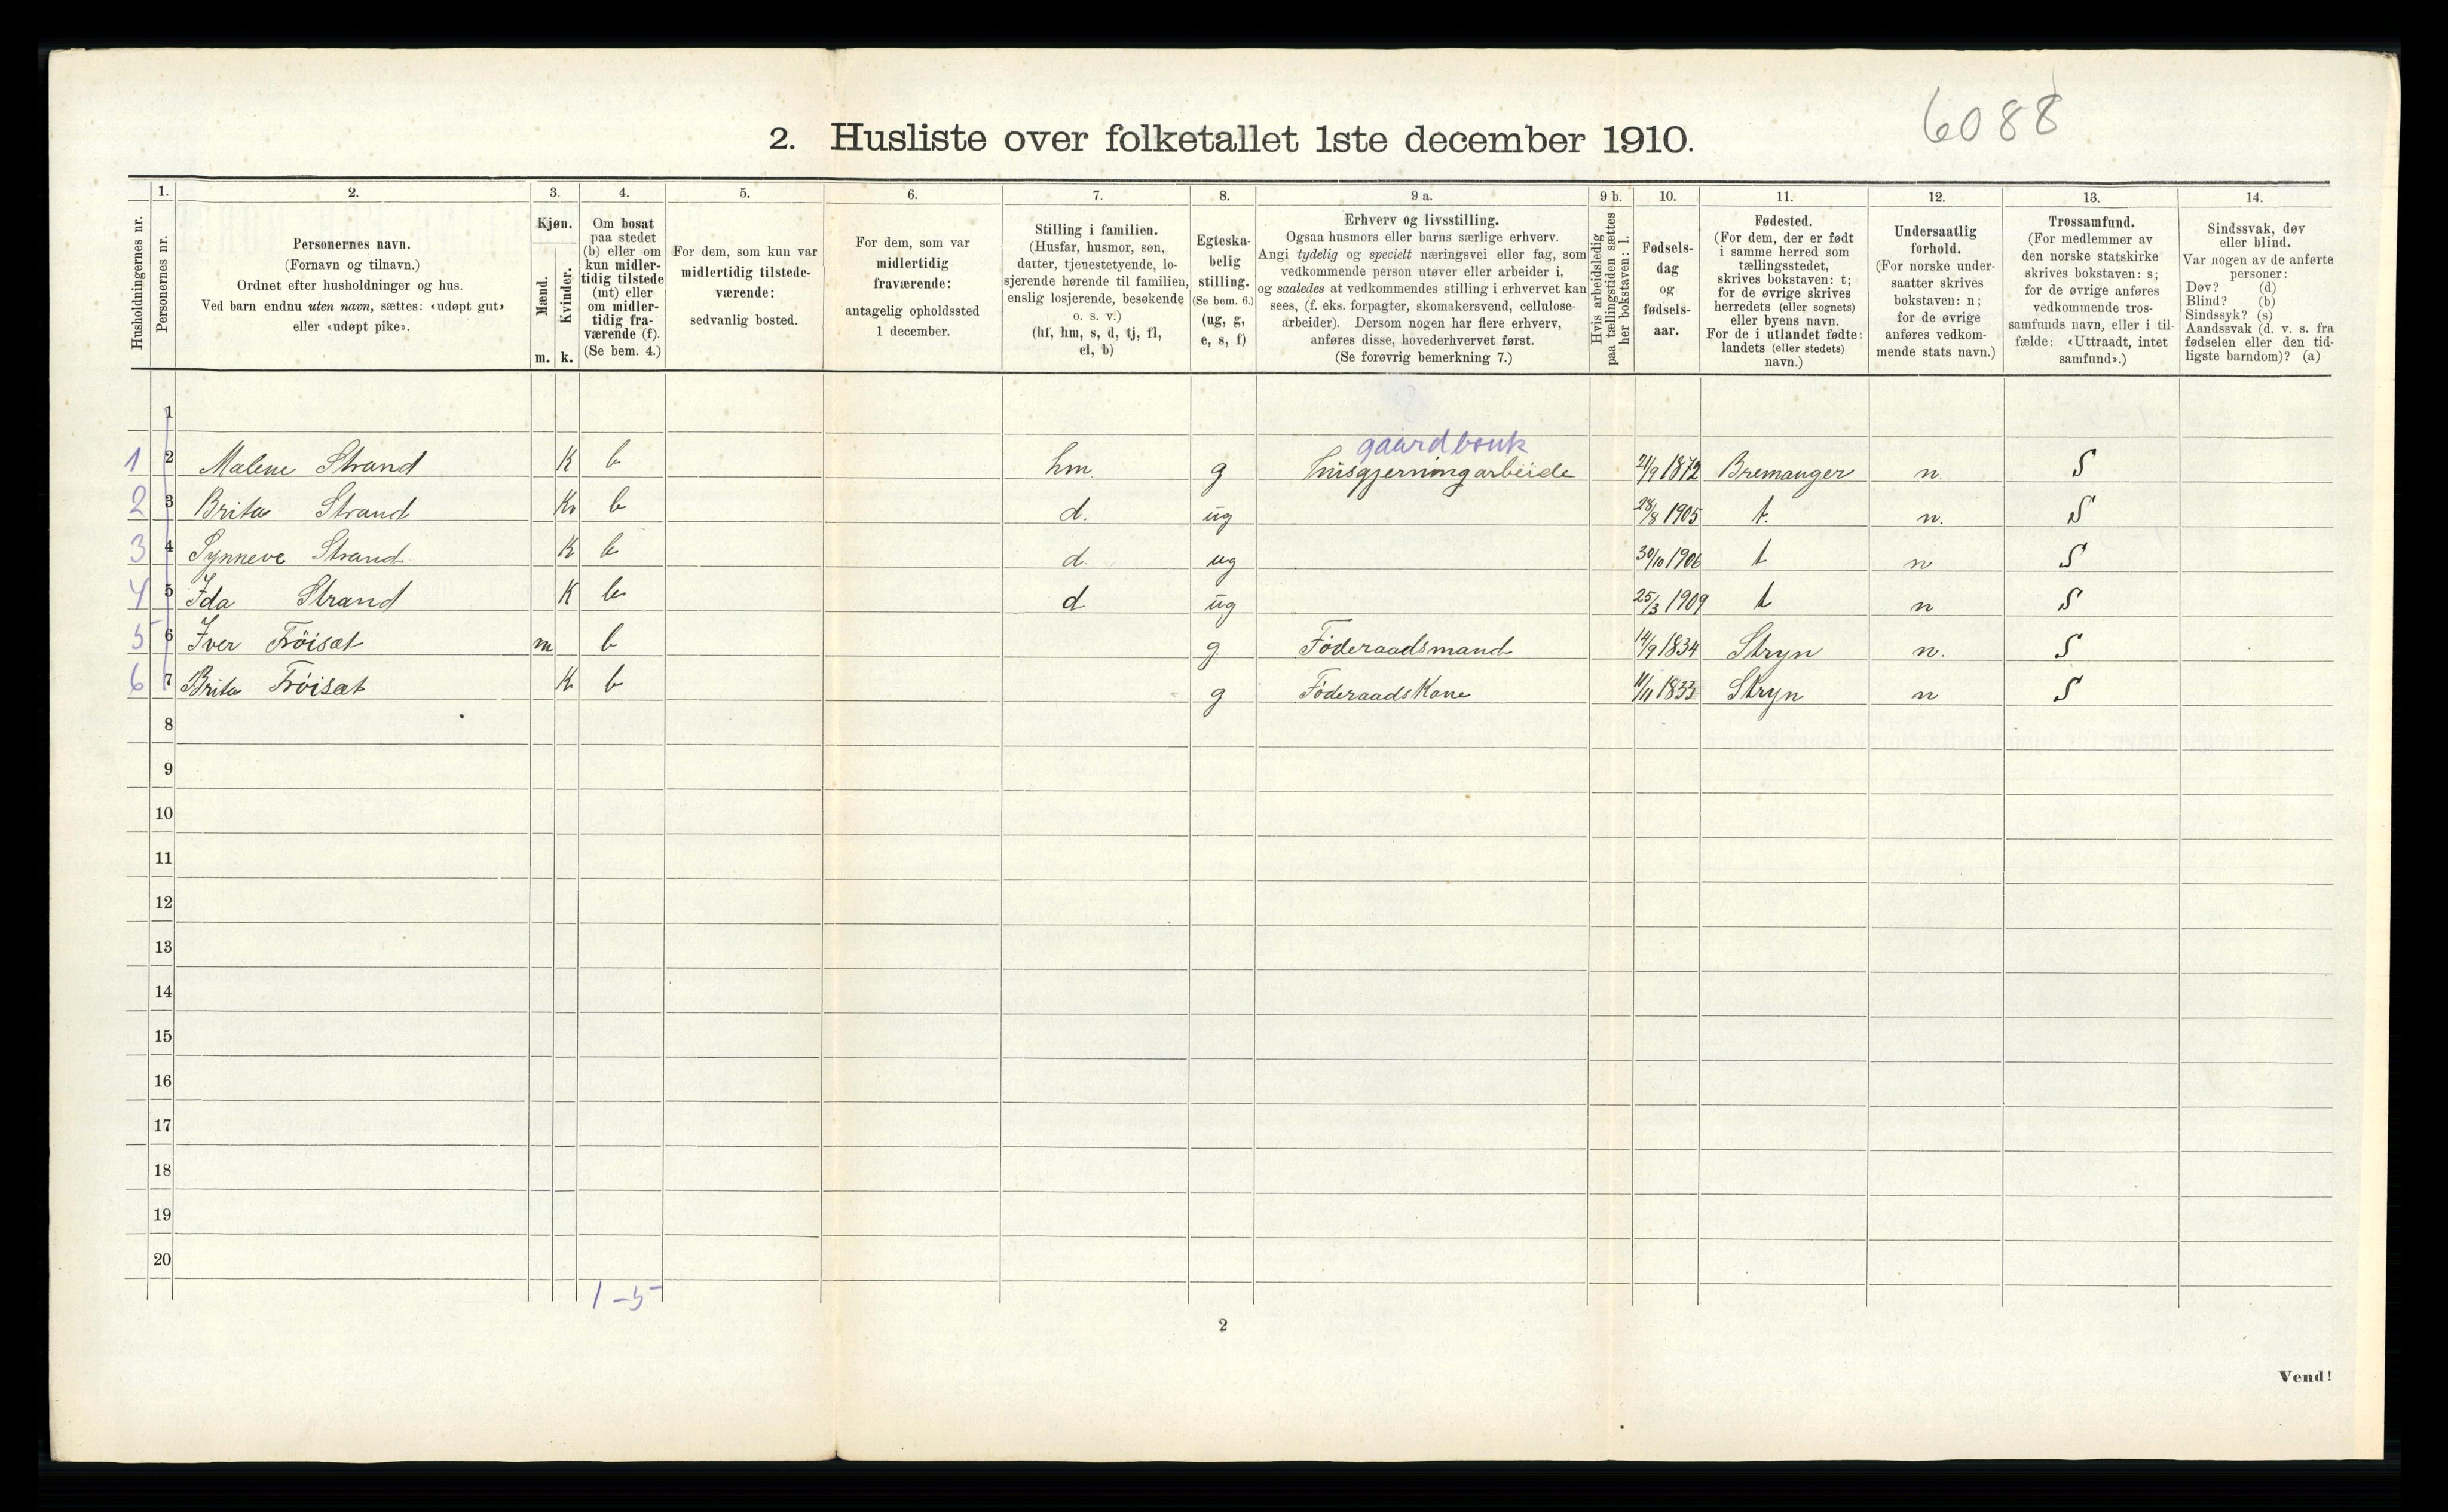 6088
2. Husliste over folketallet 1ste december 1910.
Husholdningernes nr.
1.
Personernes nr.
2.
Personernes navn.
(Fornavn og tilnavn.)
Ordnet efter husholdninger og hus.
Ved barn endnu uten navn, sættes: «udøpt gut»
eller «udøpt pike».
3.
Kjøn.
Mænd.
Kvinder.
m. k.
4.
Om bosat
paa stedet
(b) eller om
kun midler-
tidig tilstede
(mt) eller
om midler-
tidig fra-
værende (f).
(Se bem. 4.)
5.
For dem, som kun var
midlertidig tilstede-
værende:
sedvanlig bosted.
6.
For dem, som var
midlertidig
fraværende:
antagelig opholdssted
1 december.
7.
Stilling i familien.
(Husfar, husmor, søn,
datter, tjenestetyende, lo-
sjerende hørende til familien,
enslig losjerende, besøkende
o. s. v.)
(hf, hm, s, d, tj, fl,
el, b)
8.
Egteska-
belig
stilling.
(Se bem. 6.)
(ug, g,
e, s, f)
9 a.
Erhverv og livsstilling.
Ogsaa husmors eller barns særlige erhverv.
Angi tydelig og specielt næringsvei eller fag, som
vedkommende person utøver eller arbeider i,
og saaledes at vedkommendes stilling i erhvervet kan
sees, (f. eks. forpagter, skomakersvend, cellulose-
arbeider). Dersom nogen har flere erhverv,
anføres disse, hovederhvervet først.
(Se forøvrig bemerkning 7.)
9 b.
Hvis arbeidsledig
paa tællingstiden sættes
her bokstaven: l.
10.
Fødsels-
dag
og
fødsels-
aar.
11.
Fødested.
(For dem, der er født
i samme herred som
tællingsstedet,
skrives bokstaven: t;
for de øvrige skrives
herredets (eller sognets)
eller byens navn.
For de i utlandet fødte:
landets (eller stedets)
navn.)
12.
Undersaatlig
forhold.
(For norske under-
saatter skrives
bokstaven: n;
for de øvrige
anføres vedkom-
mende stats navn.)
13.
Trossamfund.
(For medlemmer av
den norske statskirke
skrives bokstaven: s;
for de øvrige anføres
vedkommende tros-
samfunds navn, eller i til-
fælde: «Uttraadt, intet
samfund».)
14.
Sindssvak, døv
eller blind.
Var nogen av de anførte
personer:
Døv? (d)
Blind? (b)
Sindssyk? (s)
Aandssvak (d. v. s. fra
fødselen eller den tid-
ligste barndom)? (a)
1
gaardbruk
1 2 Malene Strand K b hm. g husgjerningarbeide 21/9 1872 Bremanger n. S
2 3 Brita Strand K b d. ug 28/8 1905 t. n. S
3 4 Synneve Strand K b d. ug 30/10 1906 t n S
4 5 Ida Strand K b d ug 25/3 1909 t n S
5 6 Iver Tröisæt m b g. Föderaadsmand 14/9 1834 Stryn n. S
6 7 Brita Tröisæt K b g FöderaadsKone 11/11 1833 Stryn n S
8
9
10
11
12
13
14
15
16
17
18
19
20
1-5
2
Vend!